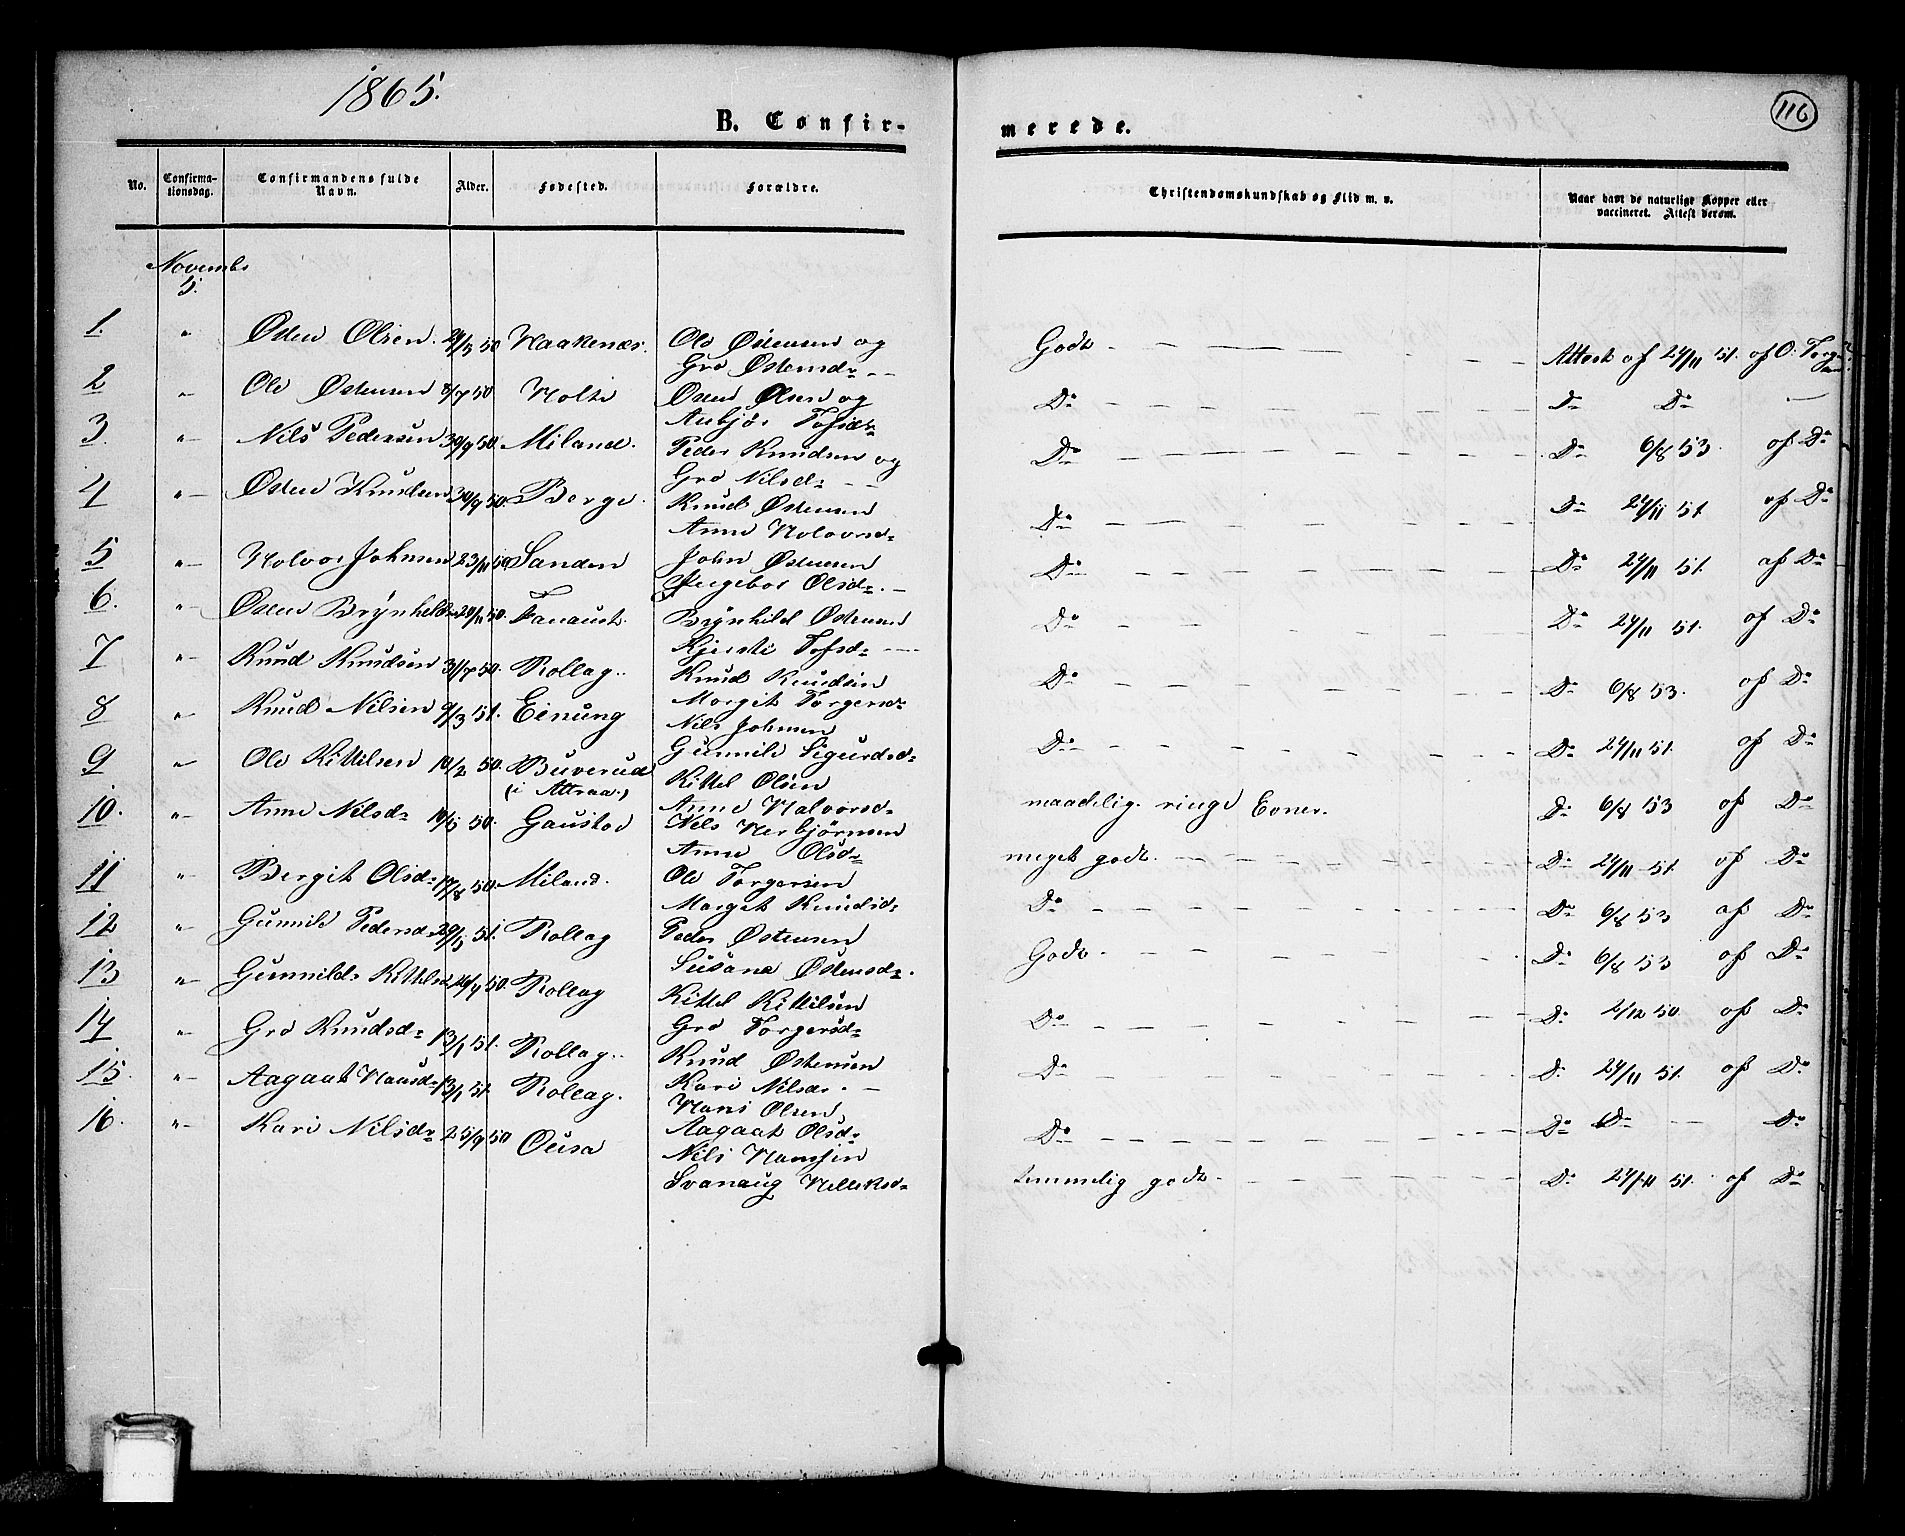 1865.
116
B. Confir-
merede.
No.
Confirma-
tionsdag.
Confirmandens fulde
Navn.
Alder.
Fødested.
Forældre.
Christendomskundskab og Flid m. v.
Naar havt de naturlige Kopper eller
vaccineret. Attest derom.
Novembr
5.
1. " Østen Olsen. 50 Haakenæs. Ole Østensen og
Gro Østensdr
Godt Attest af 24/11 51. af O. Torger
2 " Ole Østensen 8/7 50 Holte Østen Olsen og
Anbjør Tofsdr
Do Do Do
3. " Nils Pedersen 30/9 50. Miland. Peder Knudsen og
Gro Nilsdr
Do Do 6/8 53. af Do
4 " Østen Knudsen 30/9 50. Berge. Knud Østensen
Anne Holvorsdr
Do Do 24/11 51. af Do
5 " Holvor Johnsen 23/11 50 Sanden John Østensen
Ingebor Olsdr.
Do Do 24/11 51. af Do
6. " Østen Brynhilds 20/11 50. Fanaust. Brynhild Østensen
Kjersti Tofsdr
Do Do 24/11 51. af Do
7 " Knud Knudsen 3/7 50. Rollag. Knud Knudsen
Margit Torgersdr
Do Do 6/8 53. af Do
8 " Knud Nilsen 9/3 51. Einung Nils Johnsen
Gunnild Sigurdsdr
Do Do 24/11 51. af Do
9 " Ole Kittelsen 10/2 50. Buverud
(i Attraa.) Kittel Olsen
Anne Halvorsdr
maadelig. ringe Evner. Do 6/8 53 af Do
10. " Anne Nilsdr 10/5 50. Gaustad Nils Herbjørnsen
Anne Olsdr
meget godt. Do 24/11 51. af Do
11 " Bergit Olsdr 17/8 50. Miland. Ole Torgersen
Margit Knudsdr
Do Do 6/8 53 af Do
12 " Gunnild Pedersdr 29/5 51. Rollag Peder Østensen
Susane Østensdr.
Godt. Do 6/8 53 af Do
13 " Gunnild Kittelsd 26/7 50. Rollag Kittel Kittilsen
Gro Torgersdr
Do Do 2/12 50 af Do
14 " Gro Knudsdr 13/1 51. Rollag. Knud Østensen
Kari Nilsdr.
Do Do 24/11 51. af Do
15. " Aagaat Hansdr 13/1 51. Rollag. Hans Olsen
Aagaat Olsdr
Do Do Do Do
16. " Kari Nilsdr 25/9 50 Ousa Nils Hansen
Svanaug Helleksdr
temmelig godt. Do 24/11 51. af Do